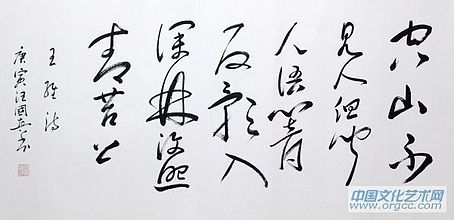 空山不
见人但闻
人语响
返影入
深林復照
青苔上
王维诗
庚寅汪国
中国文化艺术网
www.orgcc.com